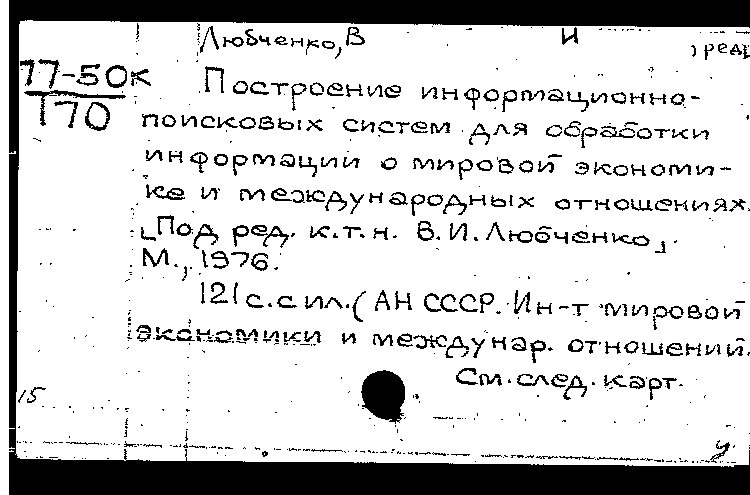 Любченко, В И , ред
77-50к Построение информационно-
170
поисковых систем для обработки
информации о мировой экономи-
ке и международных отношениях.
[Под ред. к.т.н. В.И. Любченко].
М., 1976.
121 с. с ил. (АН СССР. Ин-т мировой
экономики и междунар. отношений.
См. след. карт.
15
у.